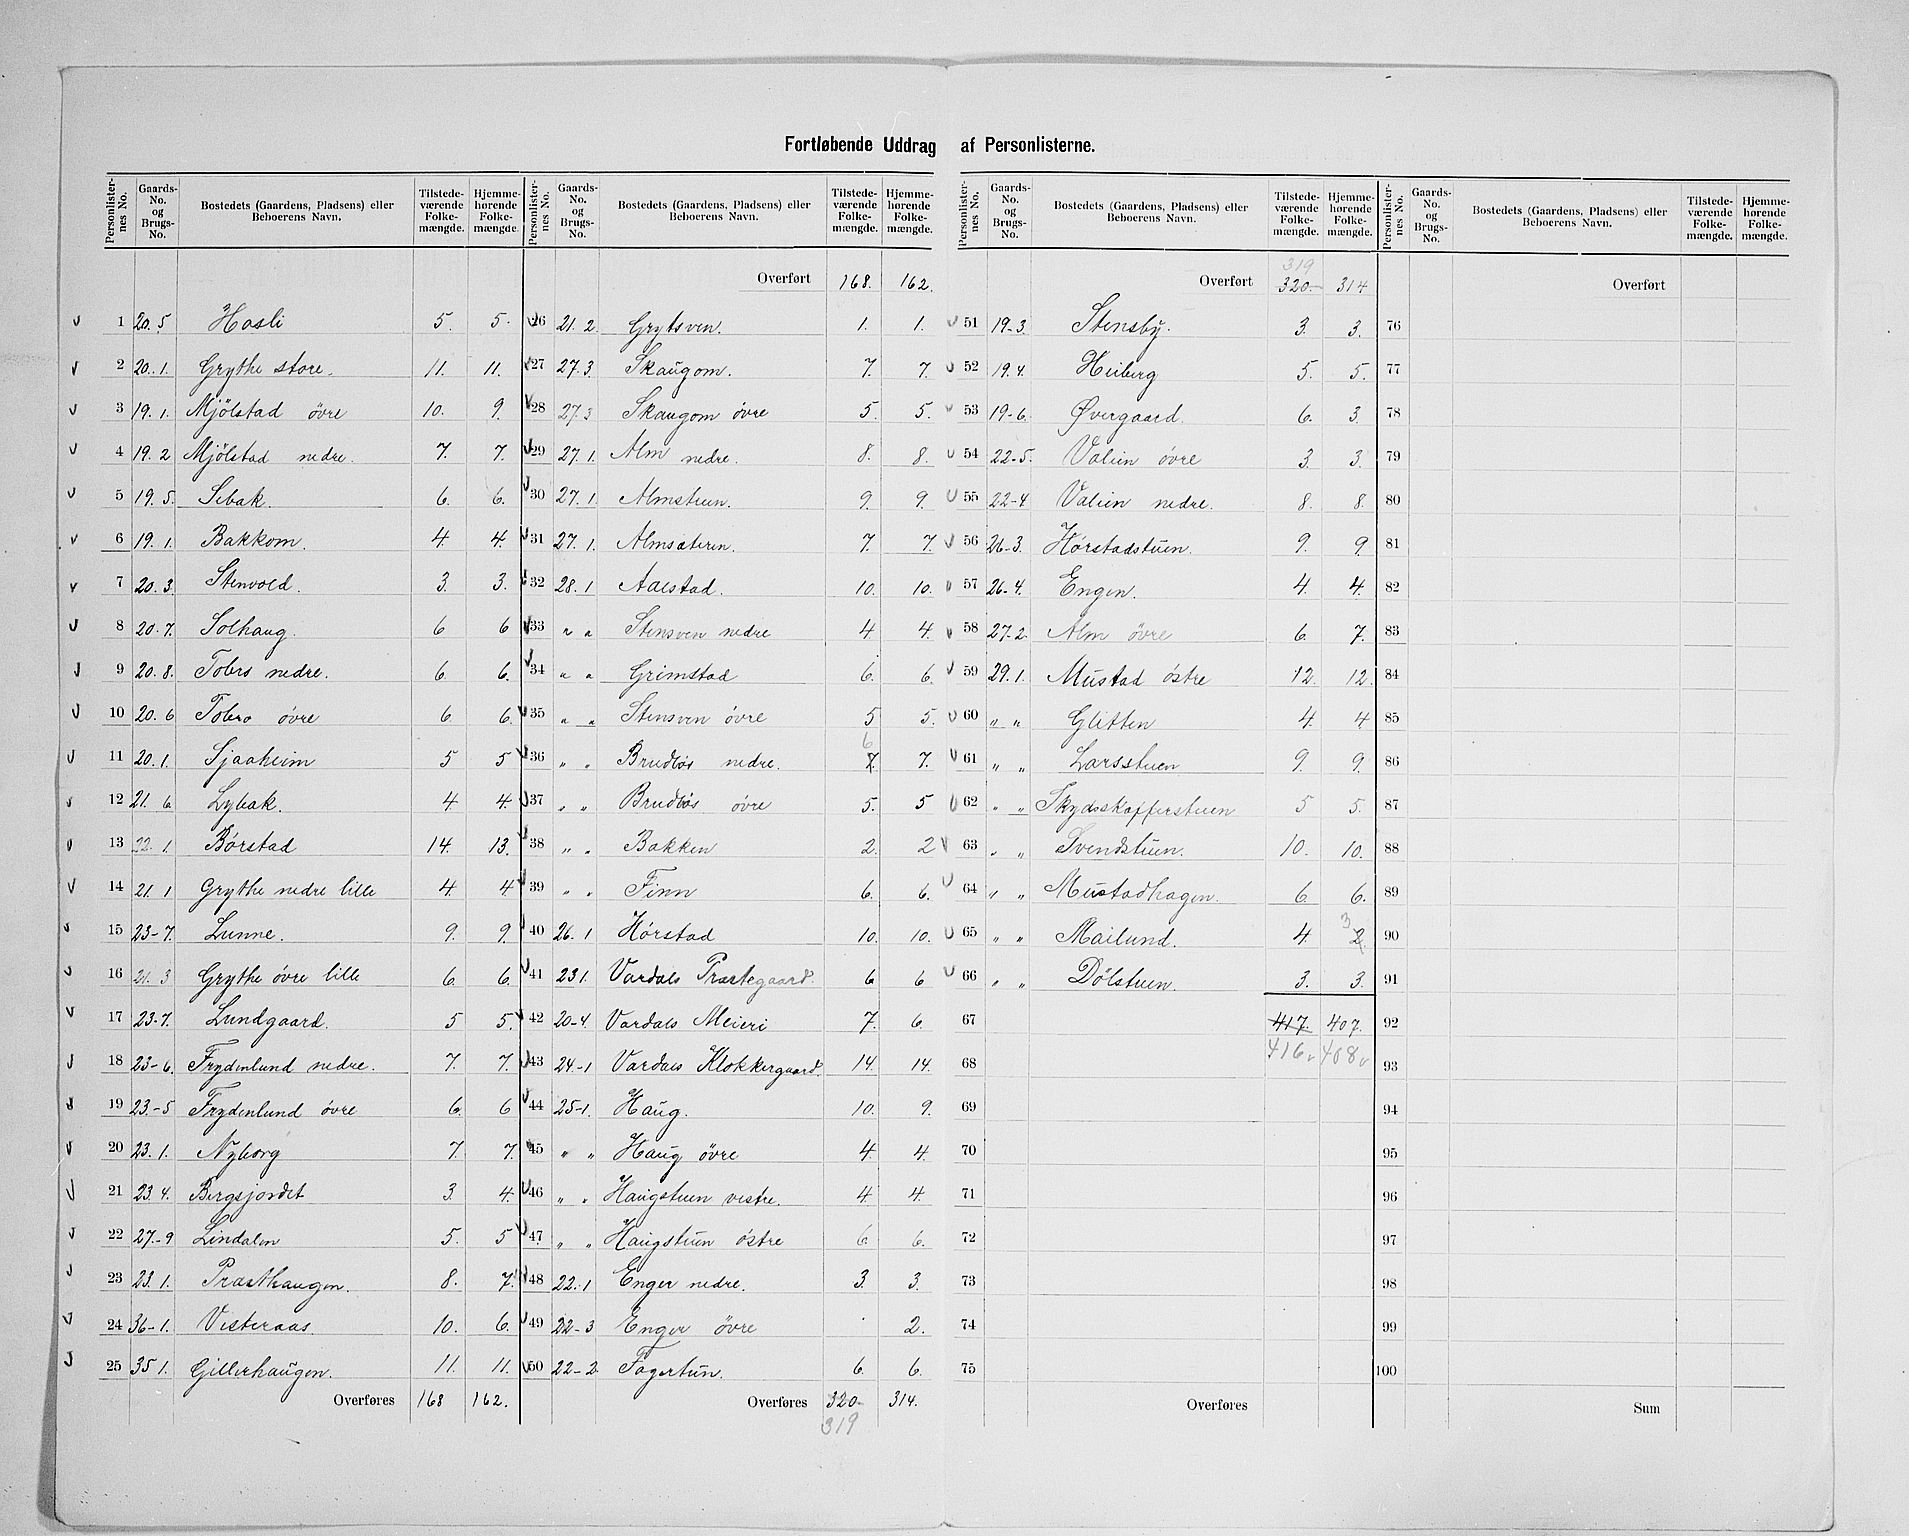 Fortløbende Uddrag af Personlisterne.
Personlisternes No. Gaards-No. og Brugs-No. Bostedets (Gaardens, Pladsens) eller Beboerens Navn. Tilstedeværende Folkemængde. Hjemmehørende Folkemængde.
1 20.5 Hasli 5. 5.
2 20.1. Grythe store. 11. 11.
3 19.1. Mjölstad övre 10. 9.
4 19.2 Mjölstad nedre. 7. 7.
5 19.5. Sebak. 6. 6.
6 19.1. Bakkom. 4. 4.
7 20.3. Stenvold. 3. 3.
8 20.7. Solhaug. 6 6
9 20.8. Tobro nedre. 6. 6.
10 20.6 Tobro övre 6. 6.
11 20.1. Sjaaheim 5 5
12 21.6 Lybak. 4 4.
13 22.1 Börstad 14. 13.
14 21.1 Grythe nedre lille 4. 4
15 23-7. Lunne. 9. 9.
16 21.3 Grythe övre lille 6. 6.
17 23-7. Lundgaard. 5 5.
18 23-6. Frydenlund nedre. 7. 7.
19 23.-5 Frydenlund övre 6. 6
20 23.1. Nyborg 7. 7.
21 23.4. Bergsjordet 3. 4.
22 27.-9 Lindalen 5. 5
23 23.1. Præsthaugen. 8. 7.
24 36-1. Vesteraas. 10. 6.
25 35 1. Gillerhaugen. 11. 11.
Overføres 168 162.
Personlisternes No. Gaards-No. og Brugs-No. Bostedets (Gaardens, Pladsens) eller Beboerens Navn. Tilstedeværende Folkemængde. Hjemmehørende Folkemængde.
Overført 168. 162.
26 21.2. Grytsven. 1. 1.
27 27.3 Skaugom. 7. 7.
28 27.3 Skaugom övre 5. 5.
29 27.1. Alm nedre. 8. 8.
30 27.1. Almstuen. 9. 9.
31 27.1. Almsæteren. 7. 7.
32 28.1 Aalstad. 10. 10.
33 " " Stensven nedre 4 4.
34 " " Grimstad 6. 6.
35 " " Stensven övre 5 5.
36 " " Brudlös nedre. 7. 6 7.
37 " " Brudlös övre 5. 5
38 " " Bakken 2. 2
39 " " Finn 6. 6.
40 26.1 Hörstad 10. 10.
41 23 1. Vardals Præstegaard. 6 6
42 20-4. Vardals Meieri 7. 6.
43 24.-1 Vardals Klokkergaard. 14. 14.
44 25-1. Haug. 10. 9.
45 " " Haug övre 4. 4
46 " " Haugstuen vestre. 4. 4.
47 " " Haugstuen östre 6. 6.
48 22.1 Enger nedre. 3. 3.
49 22-3 Enger övre . 2.
50 22-2 Fagertun. 6. 6.
Overføres 320- 314.
319
Personlisternes No. Gaards-No. og Brugs-No. Bostedets (Gaardens, Pladsens) eller Beboerens Navn. Tilstedeværende Folkemængde. Hjemmehørende Folkemængde.
319
Overført 320- 314
51 19-3. Stensby. 3. 3.
52 19.4. Heiberg 5. 5.
53 19-6. Övergaard. 6. 3.
54 22-5. Valien övre 3. 3.
55 22-4 Valien nedre. 8. 8.
56 26-3. Hörstadstuen. 9. 9
57 26-4. Engen. 4 4.
58 27-2. Alm övre 6. 7.
59 29.1. Mustad östre 12. 12.
60 " " Glitten 4. 4
61 " " Larsstuen 9. 9.
62 " " Skydsskafferstuen 5 5.
63 " " Svendstuen. 10. 10.
64 " " Mustadhagen. 6. 6.
65 " " Mailund. 4. 3 2
66 " " Dölstuen. 3. 3.
67 417. 407.
416 408
68
69
70
71
72
73
74
75
Overføres
Personlisternes No. Gaards-No. og Brugs-No. Bostedets (Gaardens, Pladsens) eller Beboerens Navn. Tilstedeværende Folkemængde. Hjemmehørende Folkemængde.
Overført
76
77
78
79
80
81
82
83
84
85
86
87
88
89
90
91
92
93
94
95
96
97
98
99
100
Sum